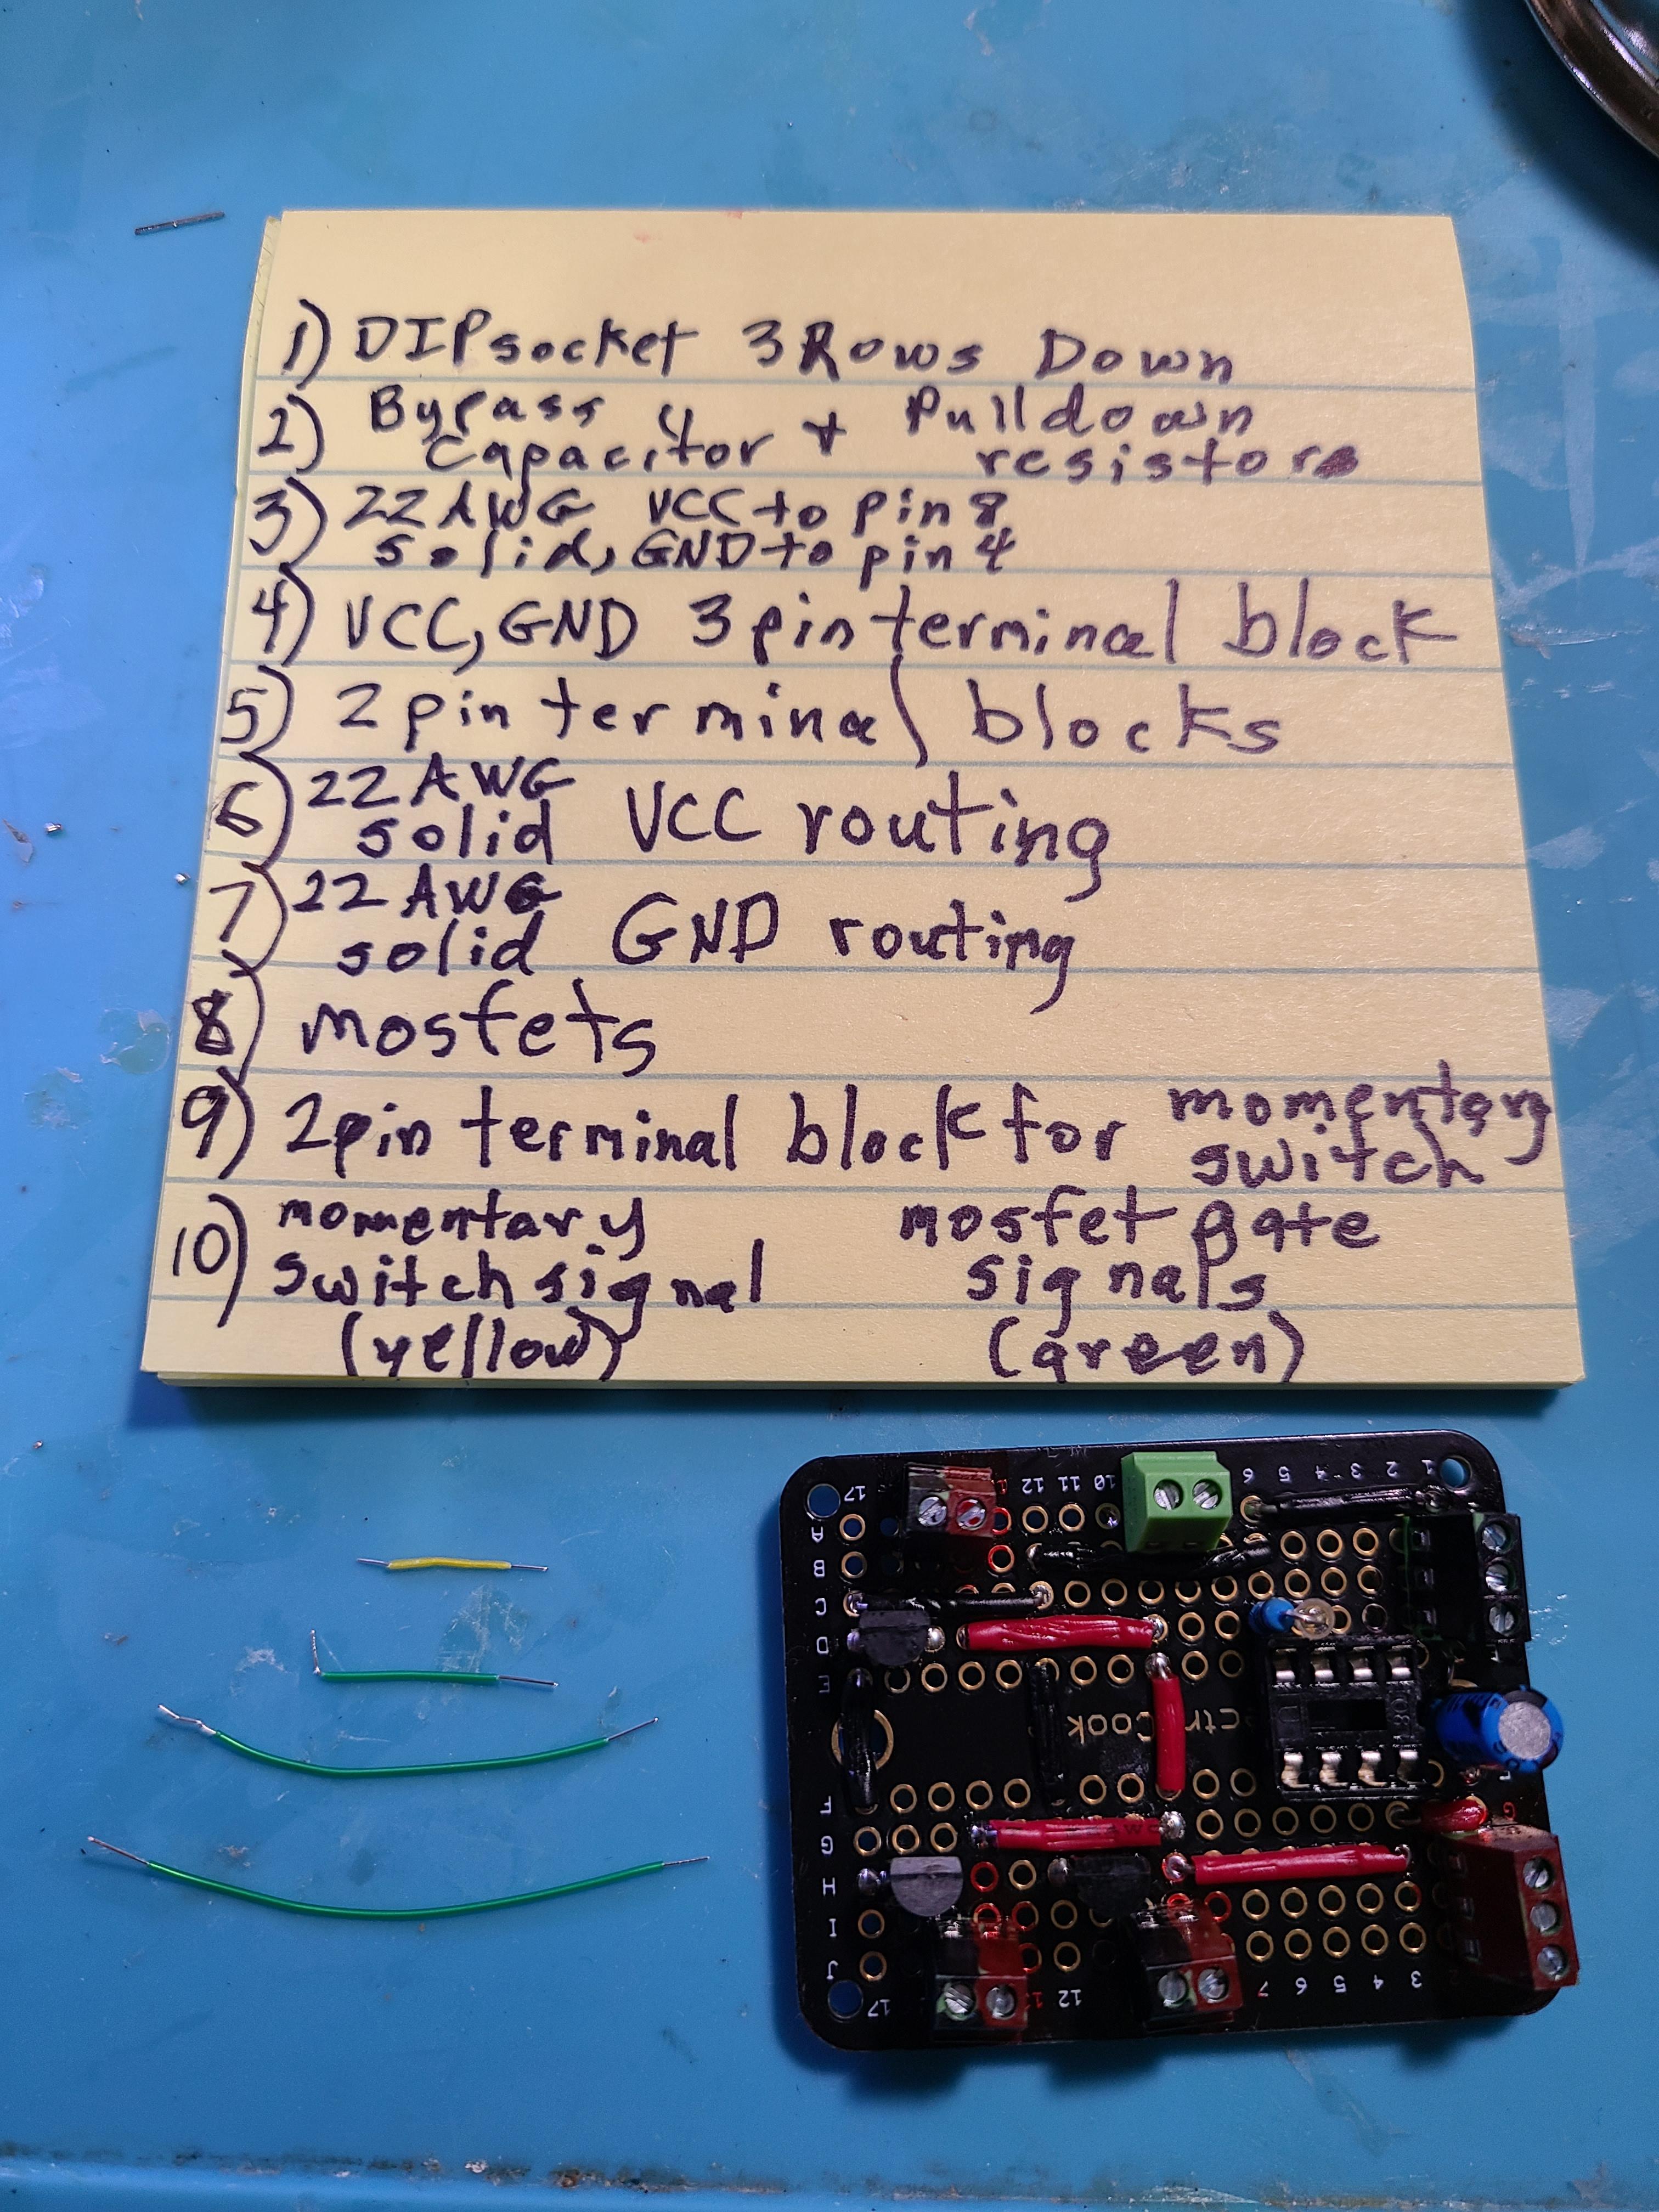 1) DIP socket 3 Rows Down
2) Bypass Capacitor + 4 Pulldown resistors
3) 22 AWG solid, VCC to pin 8
GND to pin 4
4) VCC, GND 3 pin terminal block
5) 2 pin terminal blocks
6) 22 AWG solid VCC routing
7) 22 AWG solid GND routing
8) mosfets
9) 2 pin terminal block for momentary switch
10) momentary switch signal (yellow)
mosfet gate signals (green)
17 12 11 10 6 5 4 3 2 1
A
B
C
D
E
ectr Cook
F
G
H
I
J
17 12 7 6 5 4 3